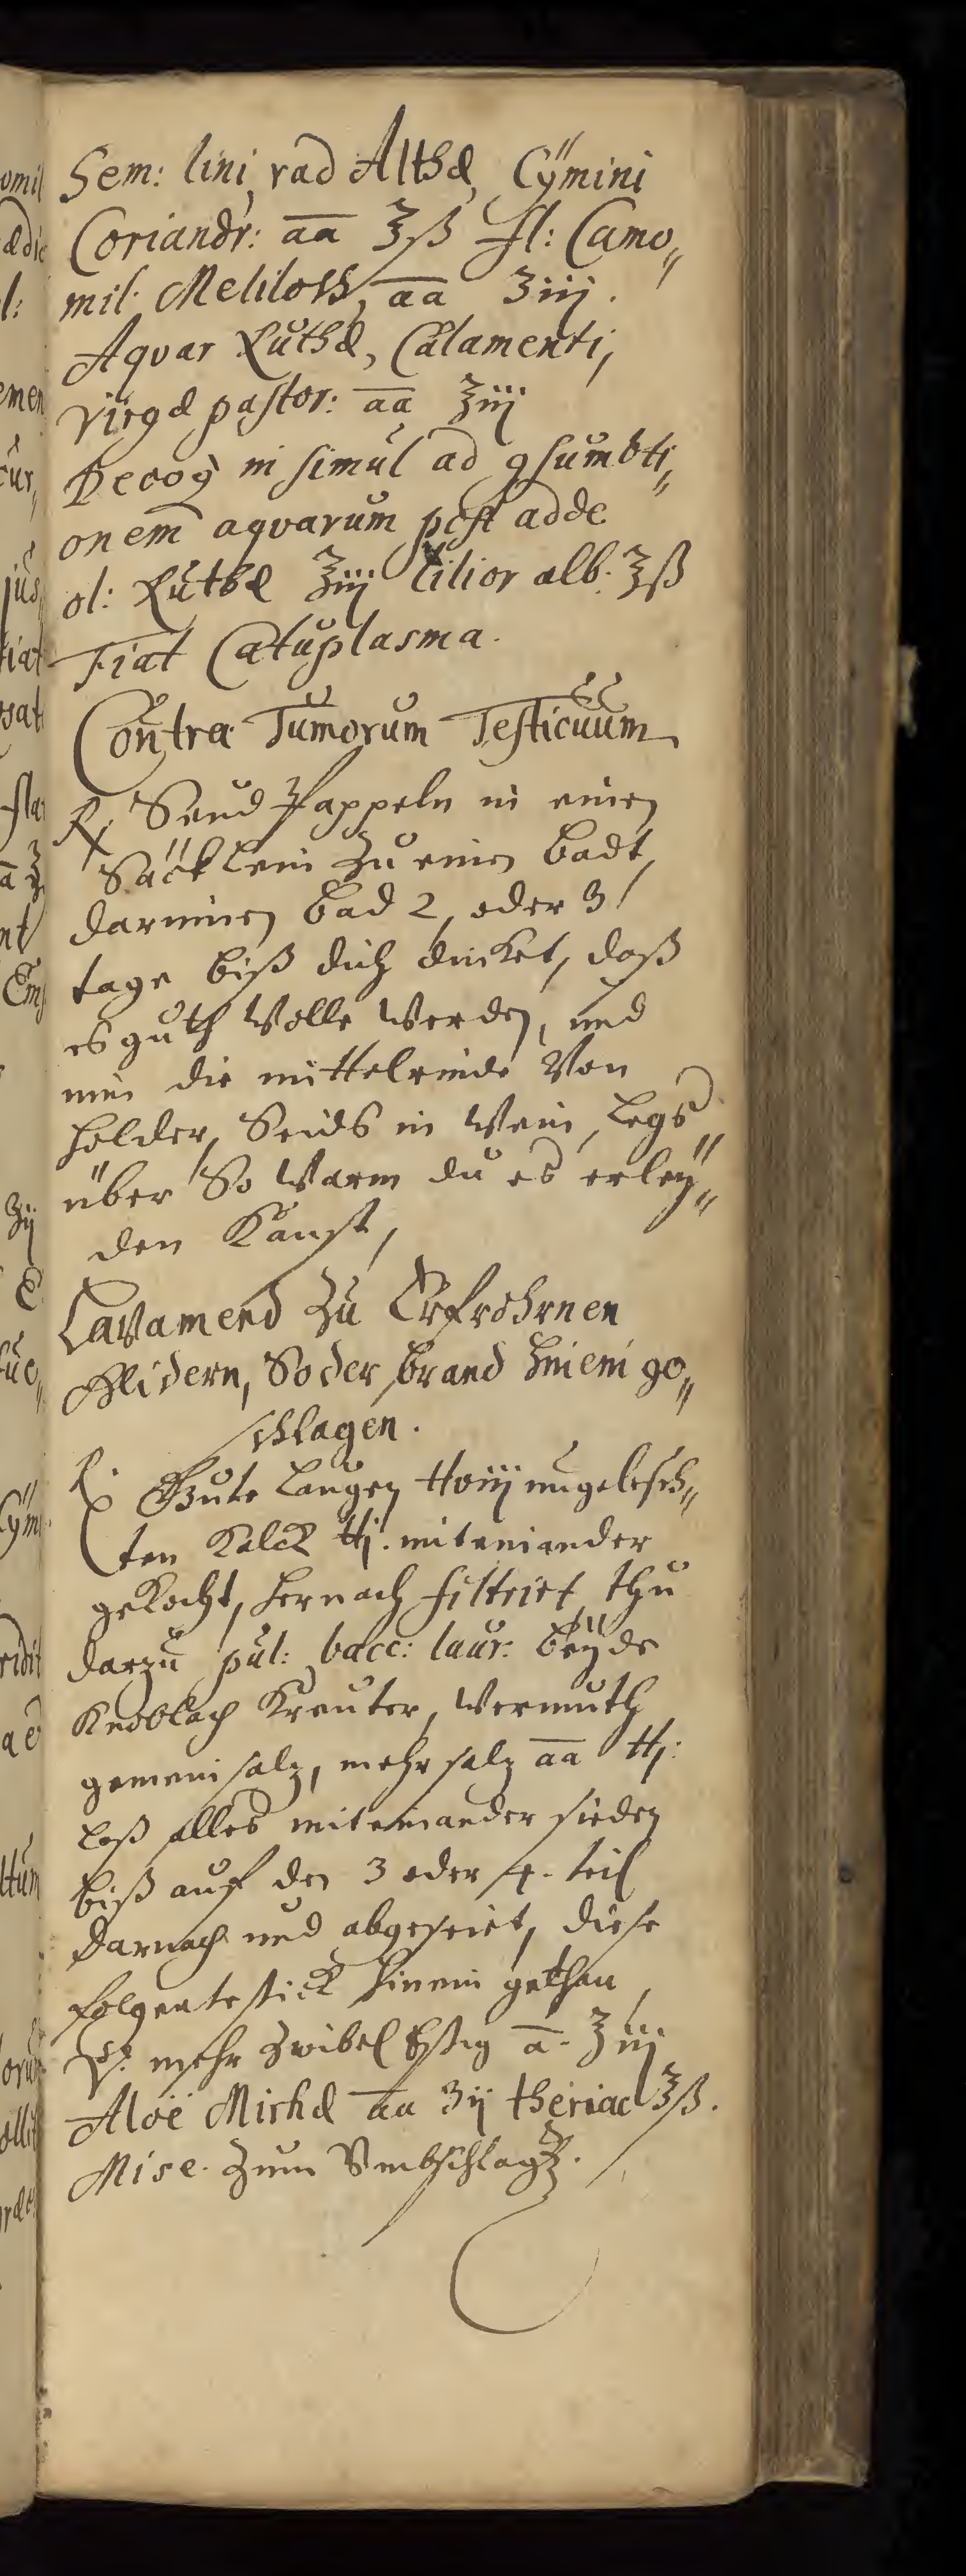 Sem: lini, rad Althæ, Cÿmini
Coriandr: aa ℥ß fl: Camo„
mil. Meliloth, aa ʒiij.
Aqvar Ruthæ, Calamenti,
Virgæ pastor: aa ℥iij
Decoq in simul ad 9sumbti„
onem aqvarum post adde
ol: Ruthæ ℥iij lilior alb. ℥ß
Fiat Catuplasma.
Contra Tumorum Testicuum
℞ Seud Pappeln in einen
Säcklein zu einen badt,
darinnen bad 2, oder 3
tage biß dich duncket, daß
es guth wolle werden, und
nim die mittelrinde Von
holder, Seids in Wein, legs
über So warm du es erleÿ„
den Kanst,
Lavamend zu Erfrohrnen
Glidern, So der brand hinein ge„
schlagen.
℞ Gute Laugen ℔viij ungelesch„
ten Kalck ℔j. miteniander
gekocht, hernach filtrirt, thu
darzu pul: bacc: laur: beÿde
Knoblach Kreuter, Wermuth
gemein salz, mehr salz aa ℔j:
Laß alles miteinander sieden
biß auf den 3 oder 4. teil
darnach und abgeseiet, diese
folgente stick hinein gethan,
℞. mehr zwibel Essig a. ℥iij
Aloë Mirhæ aa ʒij theriac ℥ß.
Misc. zum Umbschlag.